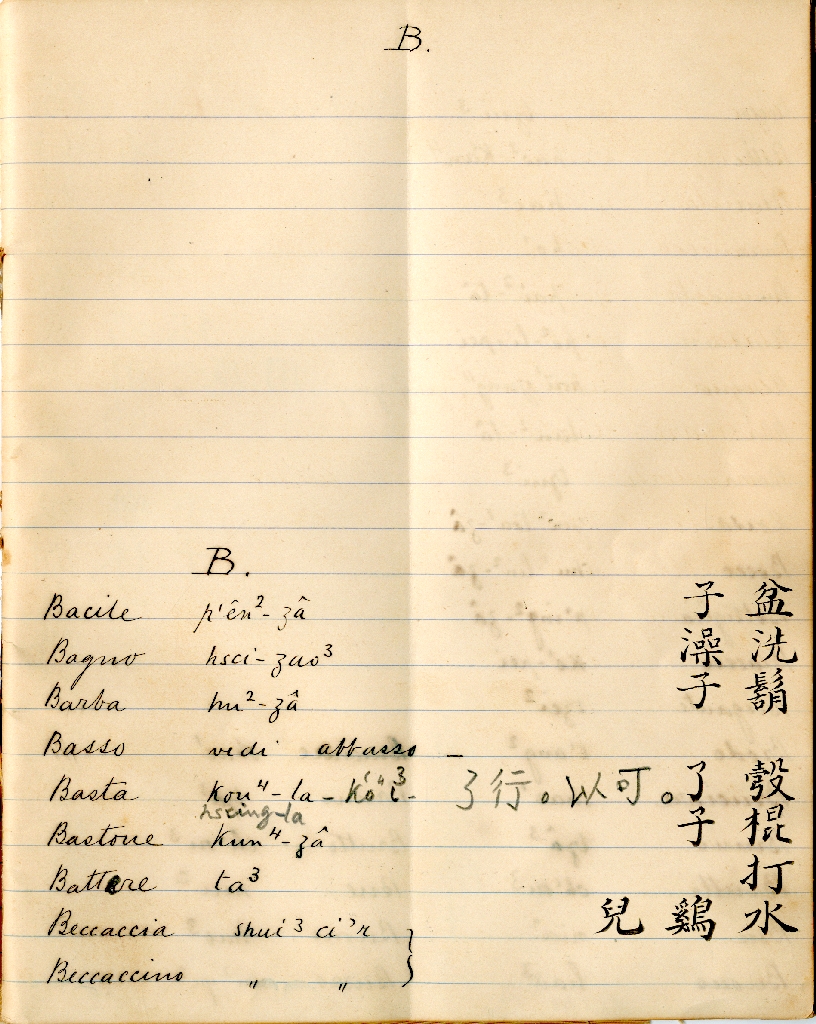 B.
B.
Bacile p'ên²-zâ 盆子
Bagno hsci-zao³ 洗澡
Barba hu²-zâ 鬍子
Basso vedi abbasso –
Basta kou⁴-la - kó"³ì - 彀了。可以。行了
hscing-la
Bastone kun⁴-zâ 棍子
Battere ta³ 打
Beccaccia shui³ ci'r 水鷄兒
Beccaccino " "